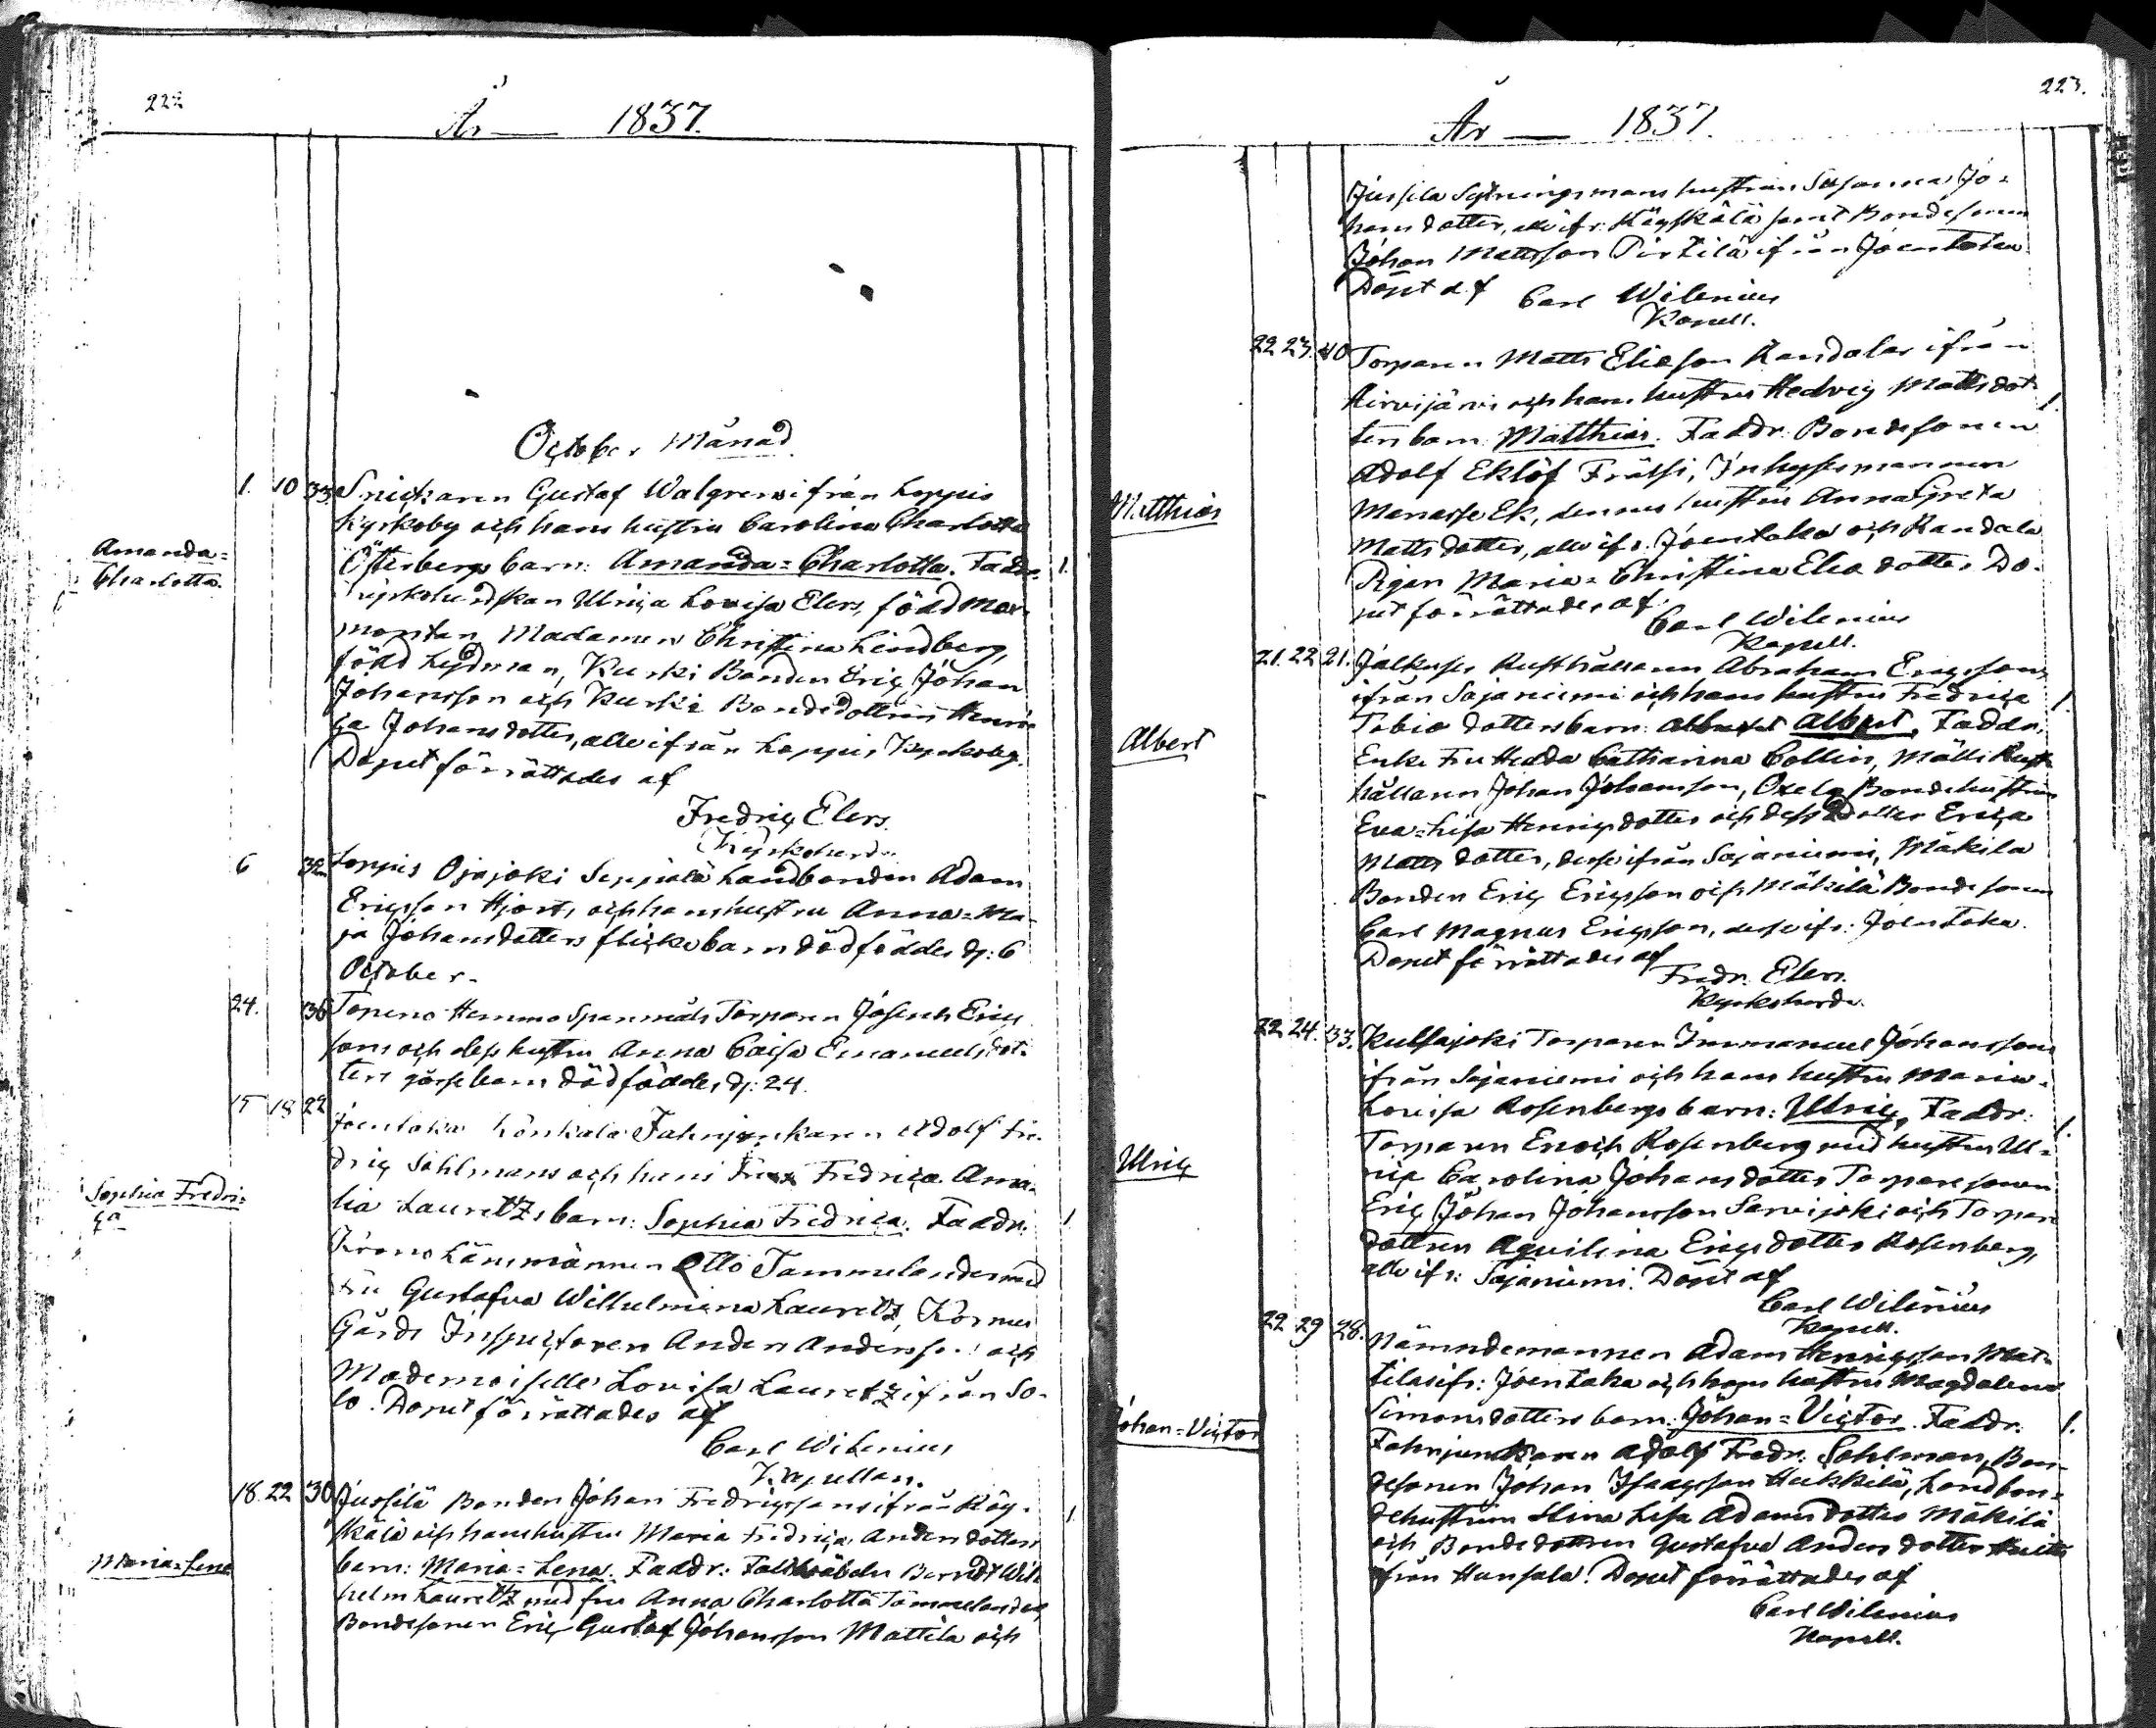 222
År — 1837.
October Månad
1. 10 33 Snickaren Gustaf Walgrens ifrån Loppis
Kyrkoby och hans hustru Carolina Charlotta
Amanda=
Charlotta.
Österbergs barn: Amanda=Charlotta. Faddr. 1.
Kyrkoherdskan Ulrica Lovisa Elers, född Mar-
montan, Madamen Christina Lindberg,
född Lydman, Kurki Bonden Eric Johan
Johansson och Kurki Bondedottren Henric-
ca Johansdotter, alle ifrån Loppis Kyrkoby.
Döpet förrättades af
Fredric Elers
Kyrkoherde.
6 32 Loppis Ojajoki Seppälä Landbonden Adam
Ericsson Hjorts, och hans hustru Anna=Ma-
ja Johansdotters flickobarn dödföddes d: 6
October.
24. 36 Topeno Hemmo Spannmåls Torparen Joseph Erics
sons och dess hustru Anna Caisa Emanuelsdot-
ters gossebarn dödföddes, d: 24.
15 18 22 Joentaka Lönkala Fahnjunkaren Adolf Fre-
dric Sohlmans och hans Fru Fredrica Ama-
Sophia Fredri=
ca
lia Lauretz's barn: Sophia Fredrica. Faddr: 1.
Krono Länsmannen Otto Tammelander med
Fru Gustafva Wilhelmina Lauretz, Kormu
Gårds Inspectoren Anders Andersson och
Mademoiselle Lovisa Lauretz ifrån So-
lo. Döpet förrättades af
Carl Wilenius
Kapellan.
18. 22 30 Jussilä Bonden Johan Fredricssons ifrån Räy-
skälä och hans hustru Maria Fredrica Andersdotters 1.
Maria=Lena
barn: Maria=Lena. Faddr: Fältwäbeln Berndt Wil-
helm Lauretz med fru Anna Charlotta Tammelander,
Bondesonen Eric Gustaf Johansson Mattila och
223.
År — 1837.
Jussila Sytningsmans hustrun Susanna Jo=
hans dotter, alle ifr. Räyskälä samt Bondesonen
Johan Mattsson Pirtilä ifrån Joentaka.
Döpet af Carl Wilenius
Kapell.
22 23. 40 Torparen Matts Eliæson Randalas ifrån
Hirvijärvi och hans hustrus Hedvig Mattsdot- 1.
ters barn: Matthias. Faddr: Bondesonen
Adolf Eklöf Frätsi, Inhysesmannen
Matthias
Manasse Ek, dennes hustru Anna Greta
Matts dotter, alle ifr. Joentaka och Randala
Pigan Maria=Christina Elia dotter. Dö-
pet förrättades af
Carl Wilenius
Kapell.
21. 22 21. Jalkuses Rusthållaren Abraham Ericssons
ifrån Sajaniemi och hans hustru Fredrica 1.
Albert
Tobiæ dotters barn: Albert. Faddr.
Enke Fru Hedda Catharina Collin, Mälli Rust-
hållaren Johan Johansson, Oxela Bondehustrun
Eva=Lisa Henricsdotter och dess dotter Erica
Matts dotter, desse ifrån Sajaniemi, Mäkilä
Bonden Eric Ericsson och Mäkilä Bondesonen
Carl Magnus Ericsson, desse ifr: Joentaka.
Döpet förrättades af
Fredr. Elers.
Kyrkoherde.
22 24. 33. Kultajoki Torparen Immanuel Johanssons
ifrån Sajaniemi och hans hustru Maria-
Lovisa Rosenbergs barn: Ulric, Faddr: 1.
Torparen Enoch Rosenberg med hustru Ul-
Ulric
rica Carolina Johansdotter, Torparesonen
Eric Johan Johansson Sarvijoki och Torpare
dottren Aqvilina Ericsdotter Rosenberg,
alle ifr: Sajaniemi. Döpet af
Carl Wilenius
Kapell.
22 29 28. Nämndemannen Adam Henricsson Mat-
tilas ifr: Joentaka och hans hustrus Magdalena
Johan=Victor
Simonsdotters barn: Johan=Victor. Faddr. 1.
Fahnjunkaren Adolf Fredr. Sohlman, Bon-
desonen Johan Isaacsson Hukkilä, Landbon-
dehustrun Stina Lisa Adamsdotter Mäkilä
och Bondedottren Gustafva Andersdotter
från Hunsala. Döpet förrättades af
Carl Wilenius
Kapell.